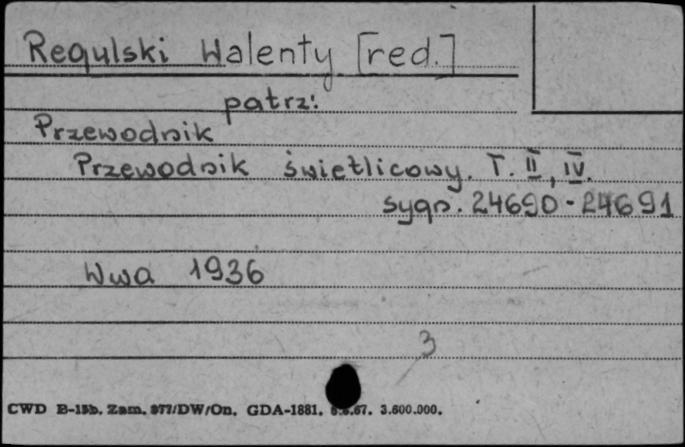 Regulski Walenty [red.]
patrz:
Przewodnik
Przewodnik świetlicowy. T. II, IV.
sygn. 24690-24691
Wwa 1936
3
CWD B-15b. Zam. 977/DW/On. GDA-1881. .67. 3.600.000.